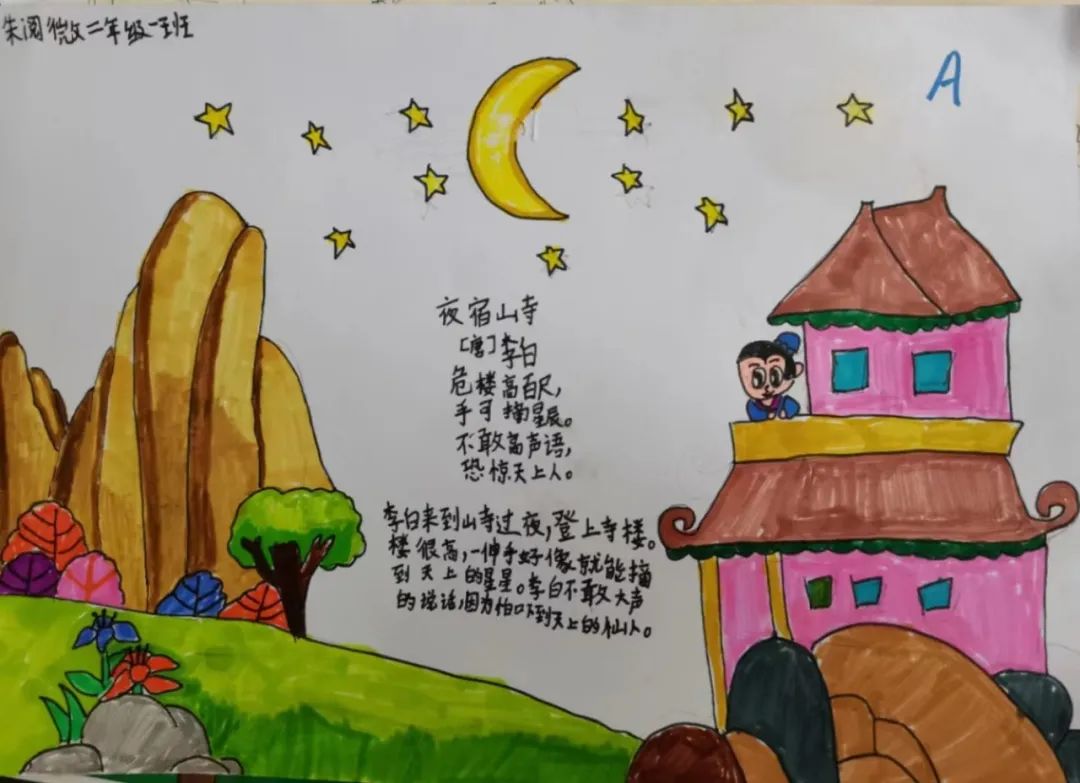 朱阅微二年级一班
A
夜宿山寺
[唐]李白
危楼高百尺，
手可摘星辰。
不敢高声语，
恐惊天上人。
李白来到山寺过夜，登上寺楼。
楼很高，一伸手好像就能摘
到天上的星星。李白不敢大声
的说话，因为怕吓到天上的仙人。